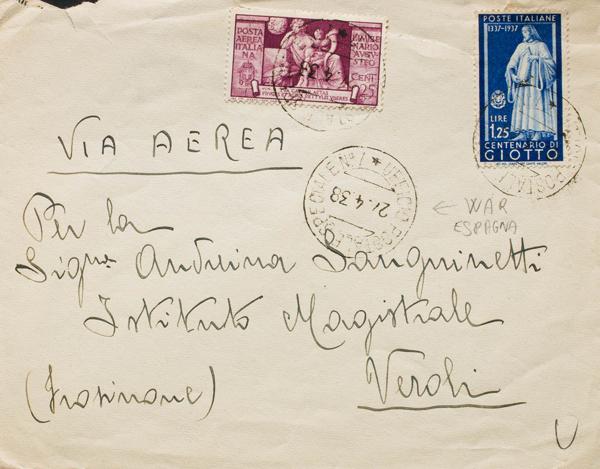 POSTA
AEREA
ITALIA
NA
BIMILLE
NARIO
AVGV
STEO
CENT
25
POSTE ITALIANE
1337-1937
LIRE
1,25
CENTENARIO DI
GIOTTO
VIA AEREA
UFFICIO POSTALE SPECIALE N° 7
21.4.38
← WAR
ESPAGNA
Per la
Sigra Andreina Sanguinetti
Istituto Magistrale
(Frosinone)
Veroli